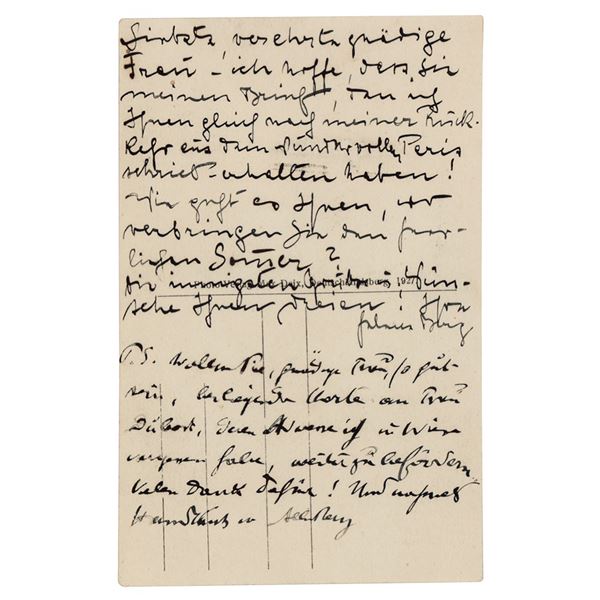 Liebste, verehrte gnädige
Frau – ich hoffe, dass Sie
meinen Brief, den ich
Ihnen gleich nach meiner Rück-
kehr aus dem wundervollen Paris
schrieb – erhalten haben!
Wie geht es Ihnen, wo
verbringen Sie den herr-
lichen Sommer?
Die innigsten Wün-
Deutschlandsberg, 1927
sche Ihnen Dreien! Ihre
Helene Berg
P.S. Wollen Sie, gnädige Frau, so gut
sein, beiliegende Karte an Frau
Dubost, deren Adresse ich in Wien
vergessen habe, weiterzubefördern
Vielen Dank dafür! Und nochmals
Handkuss v Berg